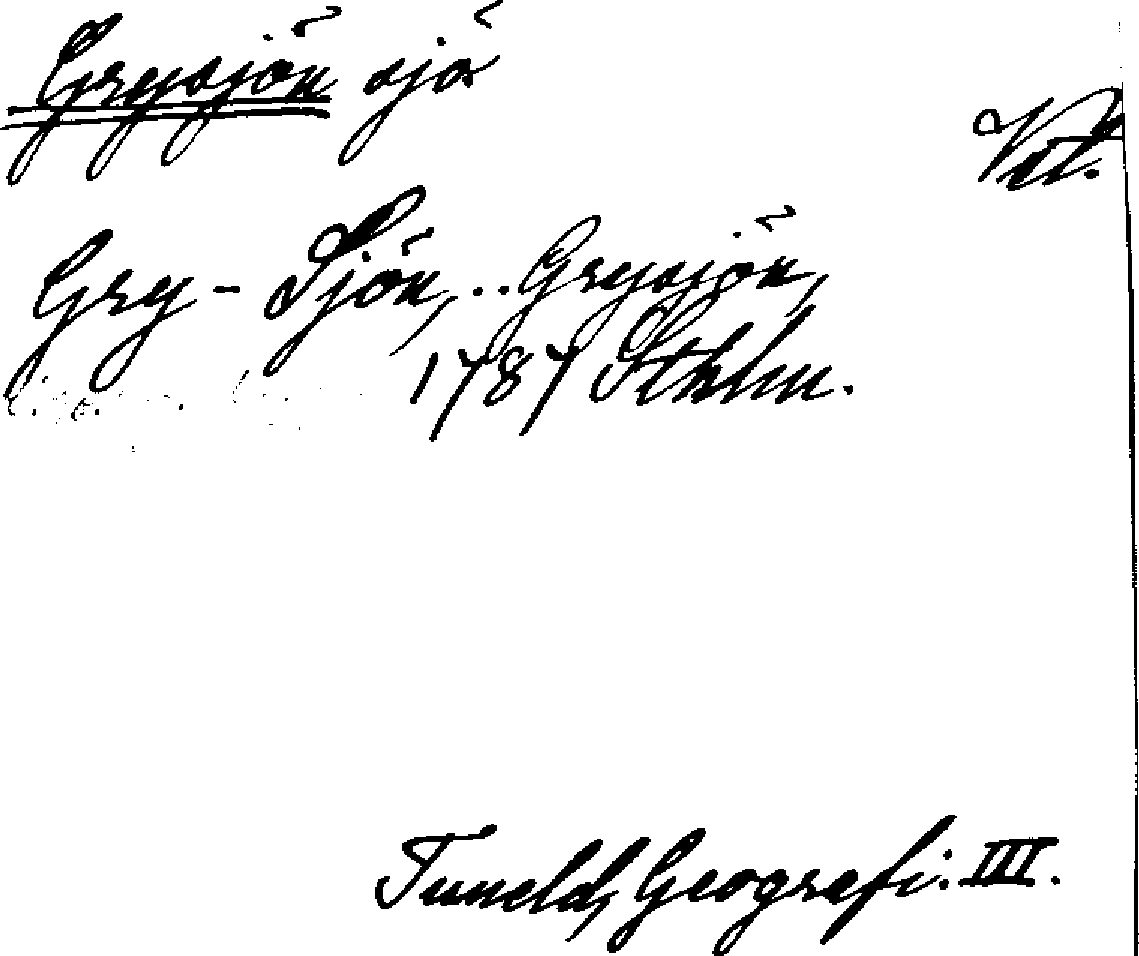 Grysjön sjö
Vrt.
Gry-Sjön, .. Grysjön,
1787 Sthlm.
Tuneld, Geografi. III.